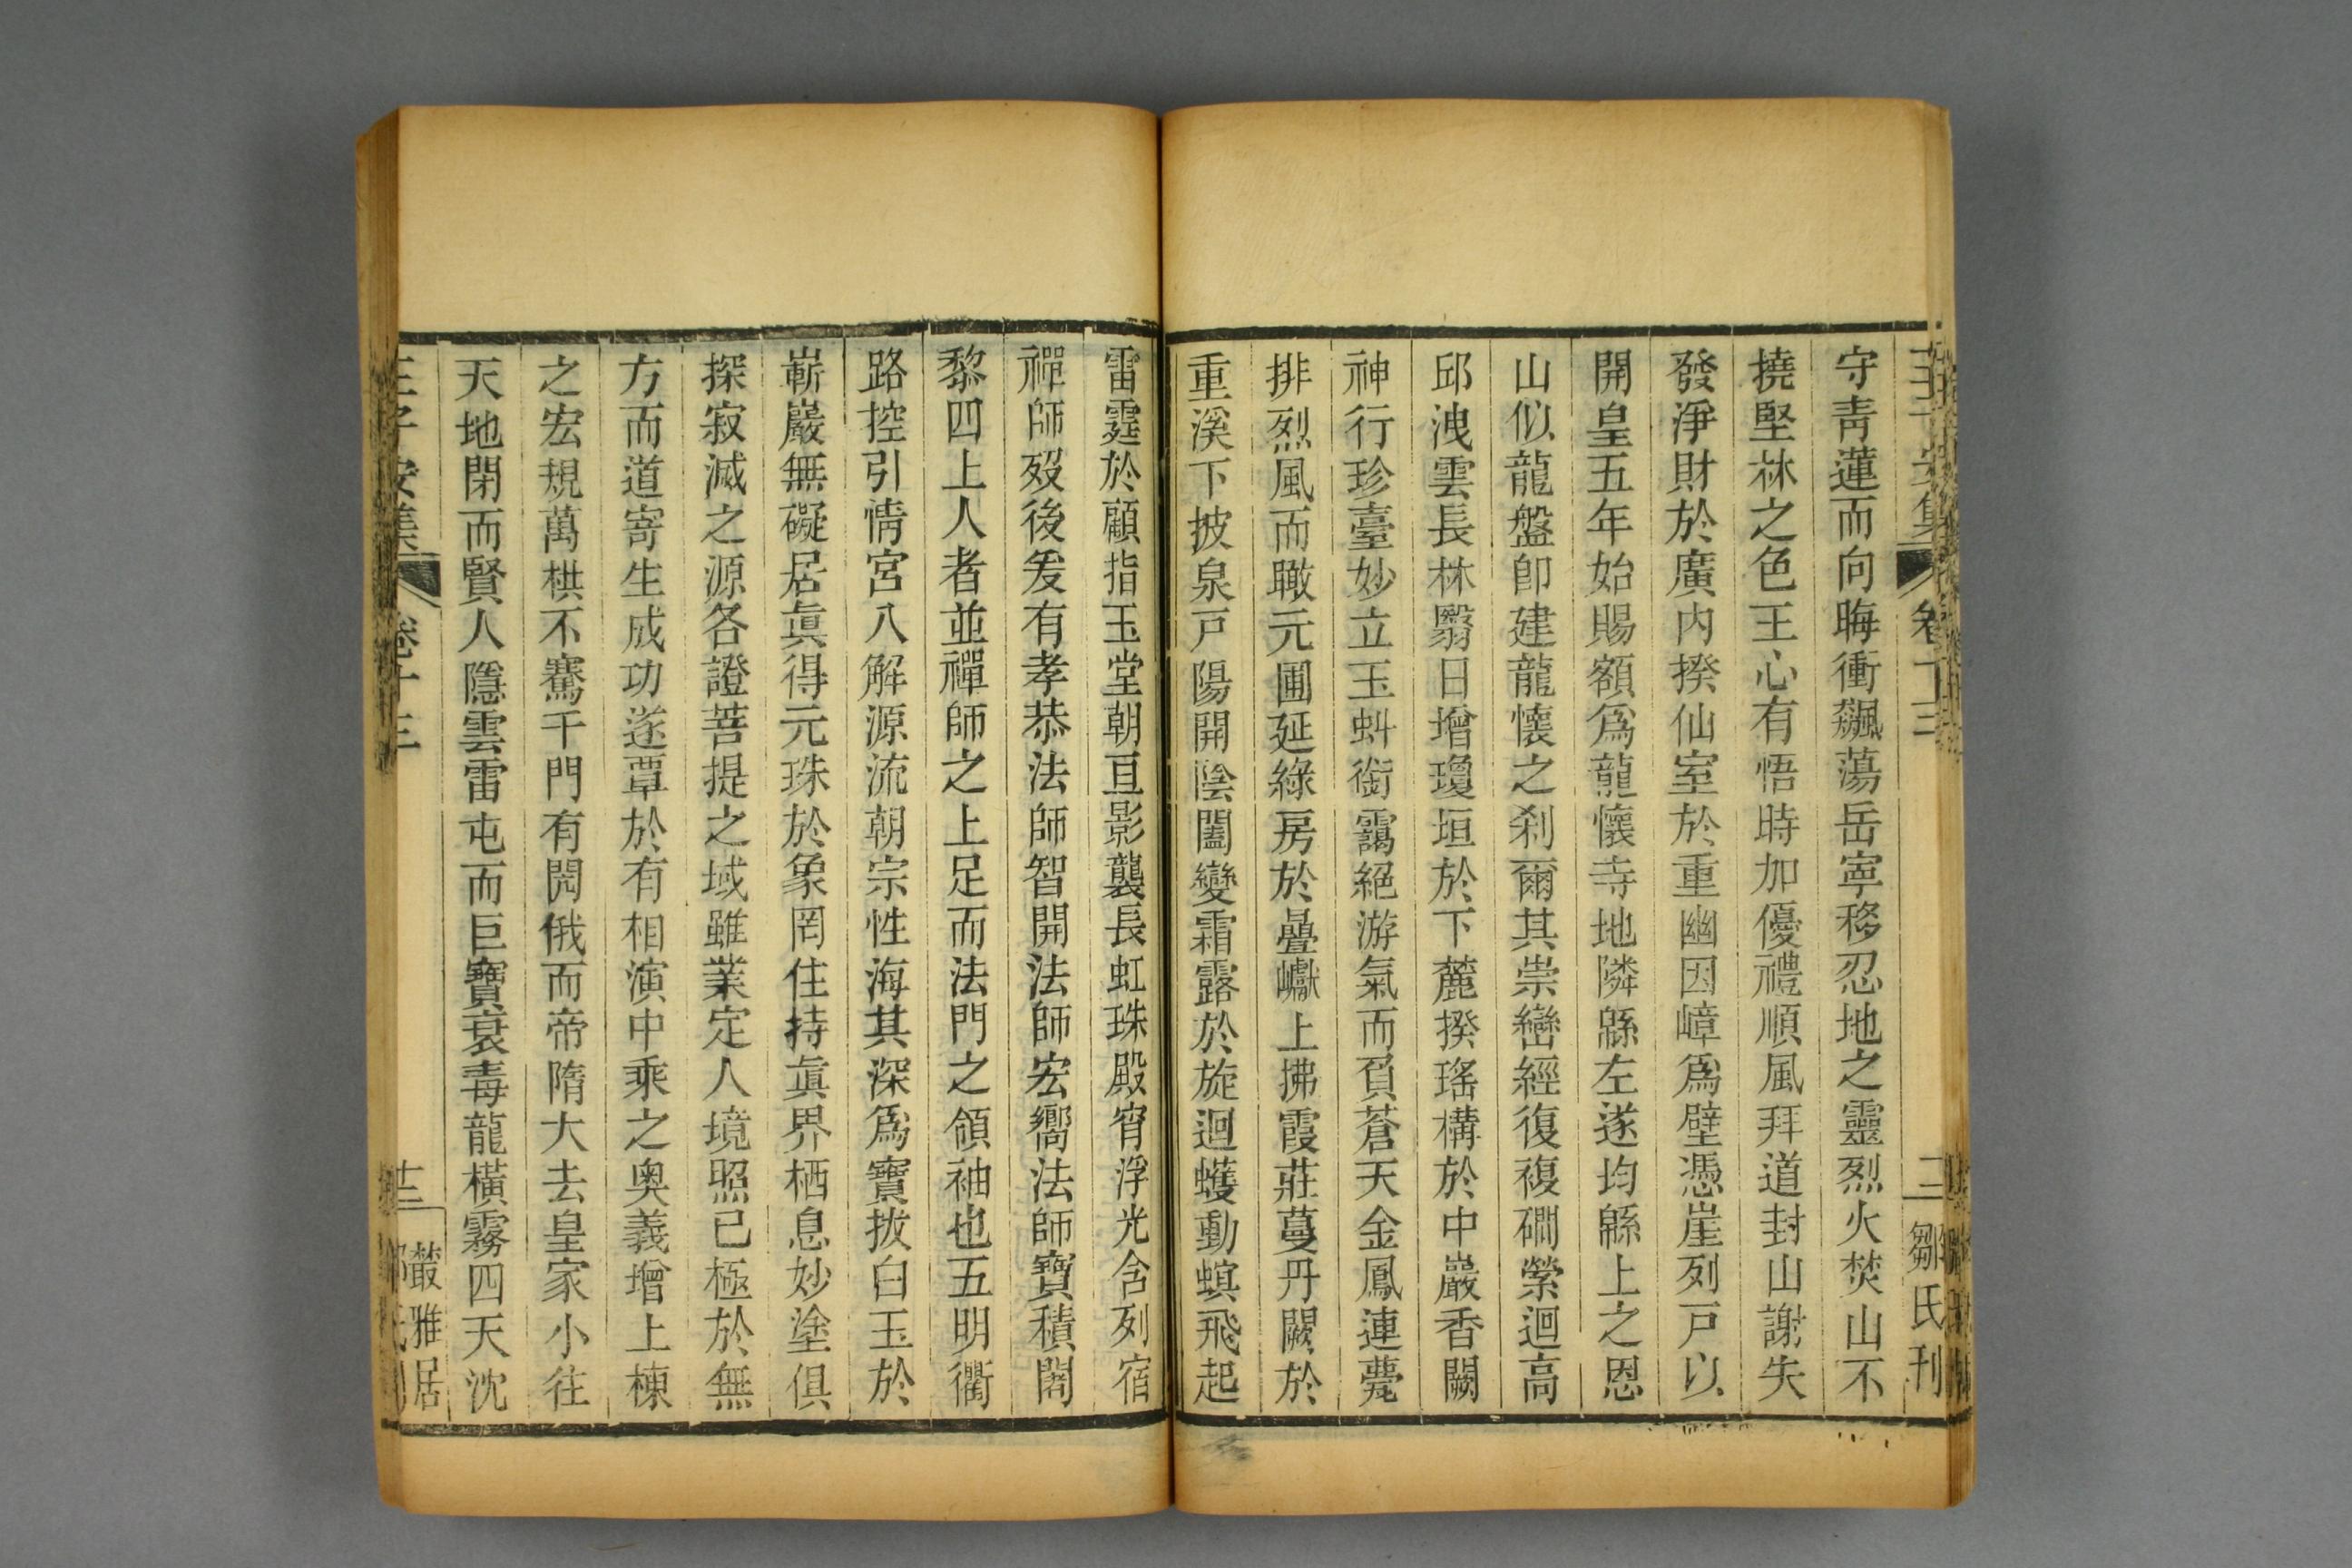 守青蓮而向晦衝飆蕩岳寧移忍地之靈烈火焚山不
撓堅林之色王心有悟時加優禮順風拜道封山謝失
發淨財於廣內揆仙室於重幽因嶂爲壁憑崖列戸以
開皇五年始賜額爲龍懷寺地隣緜左遂均緜上之恩
山似龍盤卽建龍懷之刹爾其崇巒經復複磵縈迴高
邱洩雲長林翳日增瓊垣於下麓揆瑤構於中巖香闕
神行珍臺妙立玉虯銜靄絕游氣而負蒼天金鳳連甍
排烈風而瞰元圃延綠房於疊巘上拂霞莊蔓丹闕於
重溪下披泉戸陽開陰闔變霜露於旋迴蠖動螾飛起
雷霆於顧指玉堂朝亘影襲長虹珠殿宵浮光含列宿
禪師歿後爰有孝恭法師智開法師宏嚮法師寶積闍
黎四上人者並禪師之上足而法門之領袖也五明衢
路控引情宮八解源流朝宗性海其深爲寶拔白玉於
嶄巖無礙居眞得元珠於象罔住持眞界栖息妙塗俱
探寂滅之源各證菩提之域雖業定人境照已極於無
方而道寄生成功遂覃於有相演中乘之奧義增上棟
之宏規萬栱不騫千門有閌俄而帝隋大去皇家小往
天地閉而賢人隱雲雷屯而巨寶衰毒龍橫霧四天沈
王子安集
卷十三
叢雅居
鄒氏刊